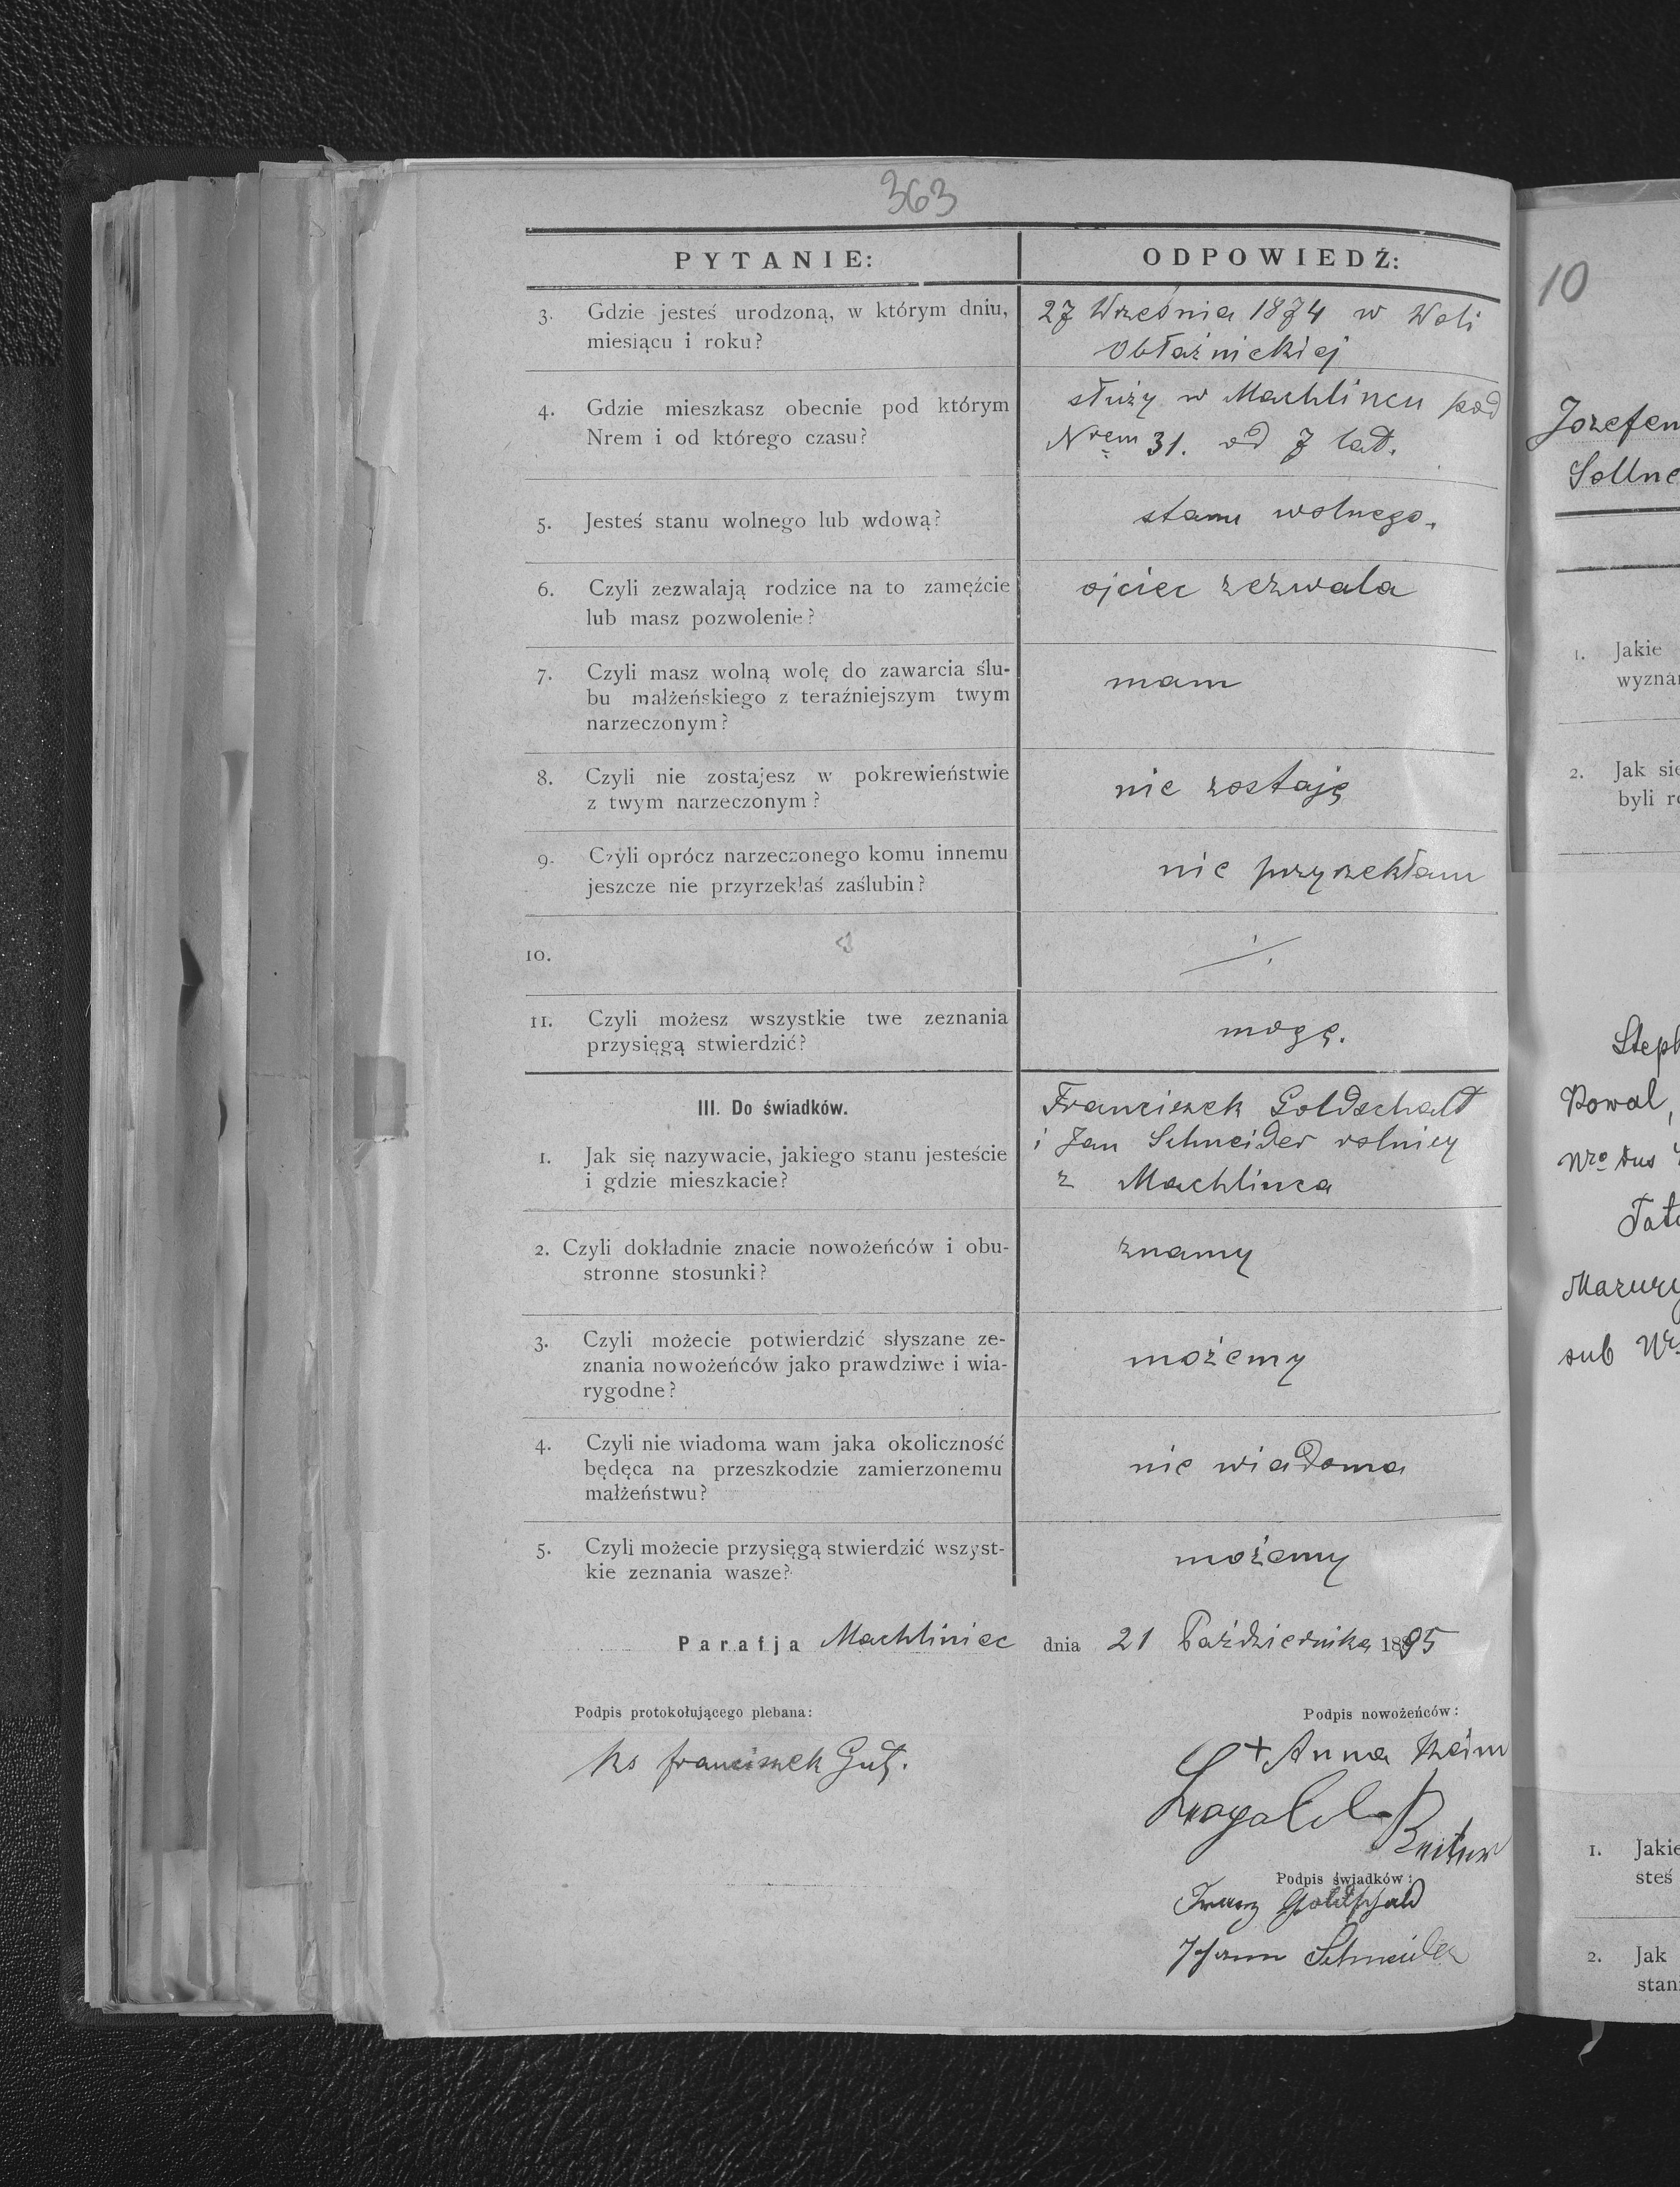 363
PYTANIE:
ODPOWIEDŹ:
3. Gdzie jesteś urodzoną, w którym dniu,
miesiącu i roku?
27 Września 1874 w Woli
Obłaźnickiej
4. Gdzie mieszkasz obecnie pod którym
Nrem i od którego czasu?
służy w Machlincu pod
Nrem 31. od 7 lat.
5. Jesteś stanu wolnego lub wdową?
stanu wolnego.
6. Czyli zezwalają rodzice na to zamęźcie
lub masz pozwolenie?
ojciec zezwala
7. Czyli masz wolną wolę do zawarcia ślu-
bu małżeńskiego z teraźniejszym twym
narzeczonym?
mam
8. Czyli nie zostajesz w pokrewieństwie
z twym narzeczonym?
nie zostaję
9. Czyli oprócz narzeczonego komu innemu
jeszcze nie przyrzekłaś zaślubin?
nie przyrzekłam
10.
11. Czyli możesz wszystkie twe zeznania
przysięgą stwierdzić?
mogę.
III. Do świadków.
1. Jak się nazywacie, jakiego stanu jesteście
i gdzie mieszkacie?
Franciszek Goldschalt
i Jan Schneider rolnicy
z Machlinca
2. Czyli dokładnie znacie nowożeńców i obu-
stronne stosunki?
znamy
3. Czyli możecie potwierdzić słyszane ze-
znania nowożeńców jako prawdziwe i wia-
rygodne?
możemy
4. Czyli nie wiadoma wam jaka okoliczność
będęca na przeszkodzie zamierzonemu
małżeństwu?
nie wiadoma
5. Czyli możecie przysięgą stwierdzić wszyst-
kie zeznania wasze?
możemy
Parafja Machliniec dnia 21 Października 1895
Podpis protokołującego plebana:
Podpis nowożeńców:
ks franciszek
+ Anna
Podpis świadków:
Franz Goldschald
Johann Schneider
10
Jozefem
1. Jakie
wyznan
2. Jak się
byli ro
Steph
Kowal,
Mazury
sub Nr
1. Jakie
steś
2. Jak
stan